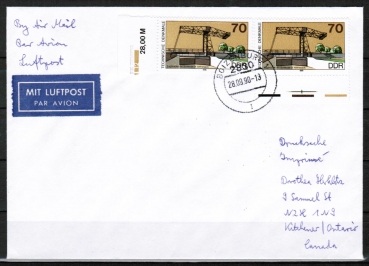 By Air Mail
Par Avion
Luftpost
MIT LUFTPOST
PAR AVION
28,00 M
TECHNISCHE DENKMALE
70
TECHNISCHE DENKMALE
70
DDR
2330
28.09.90-13
Drucksache
Imprimé
Dorothea
9 Samuel St
N2H 1N9
Kitchener/Ontario
Canada